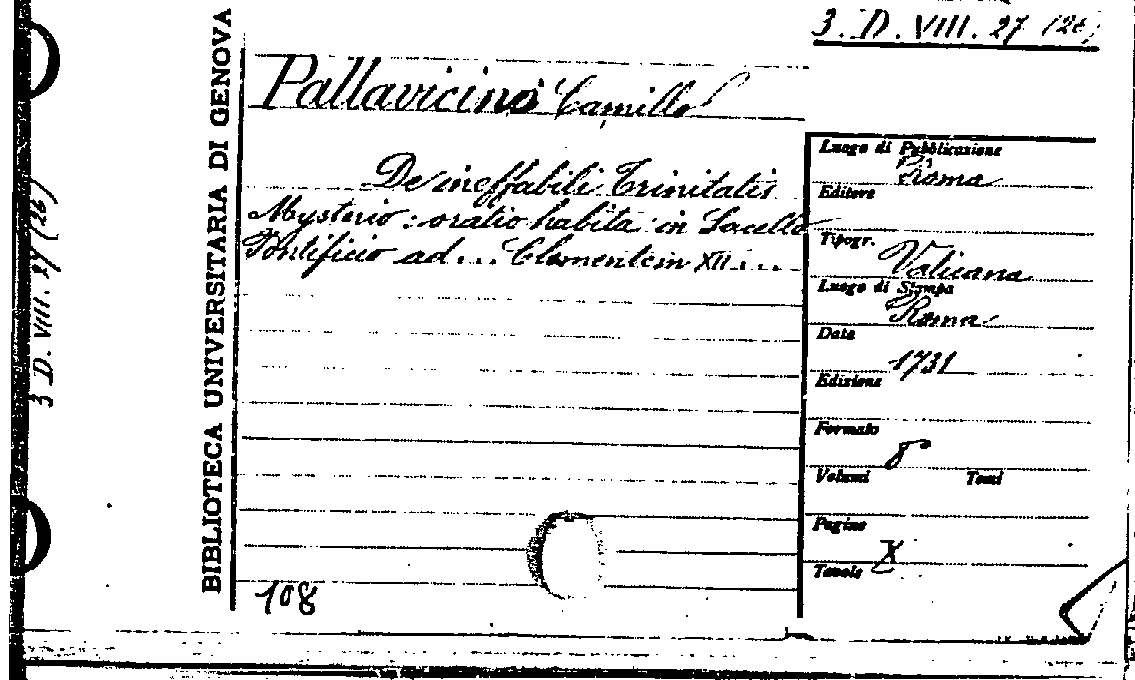 3. D. VIII. 27 (26)
BIBLIOTECA UNIVERSITARIA DI GENOVA
3 D. VIII. 27 (26)
Pallavicino Camillo
De ineffabili Trinitatis
Mysterio : oratio habita in Sacello
Pontificio ad... Clementem XII....
108
Luogo di Pubblicazione
Roma
Editore
Tipogr.
Vaticana
Luogo di Stampa
Roma
Data
1731
Edizione
Formato
8°
Volumi Tomi
Pagine
X
Tavole